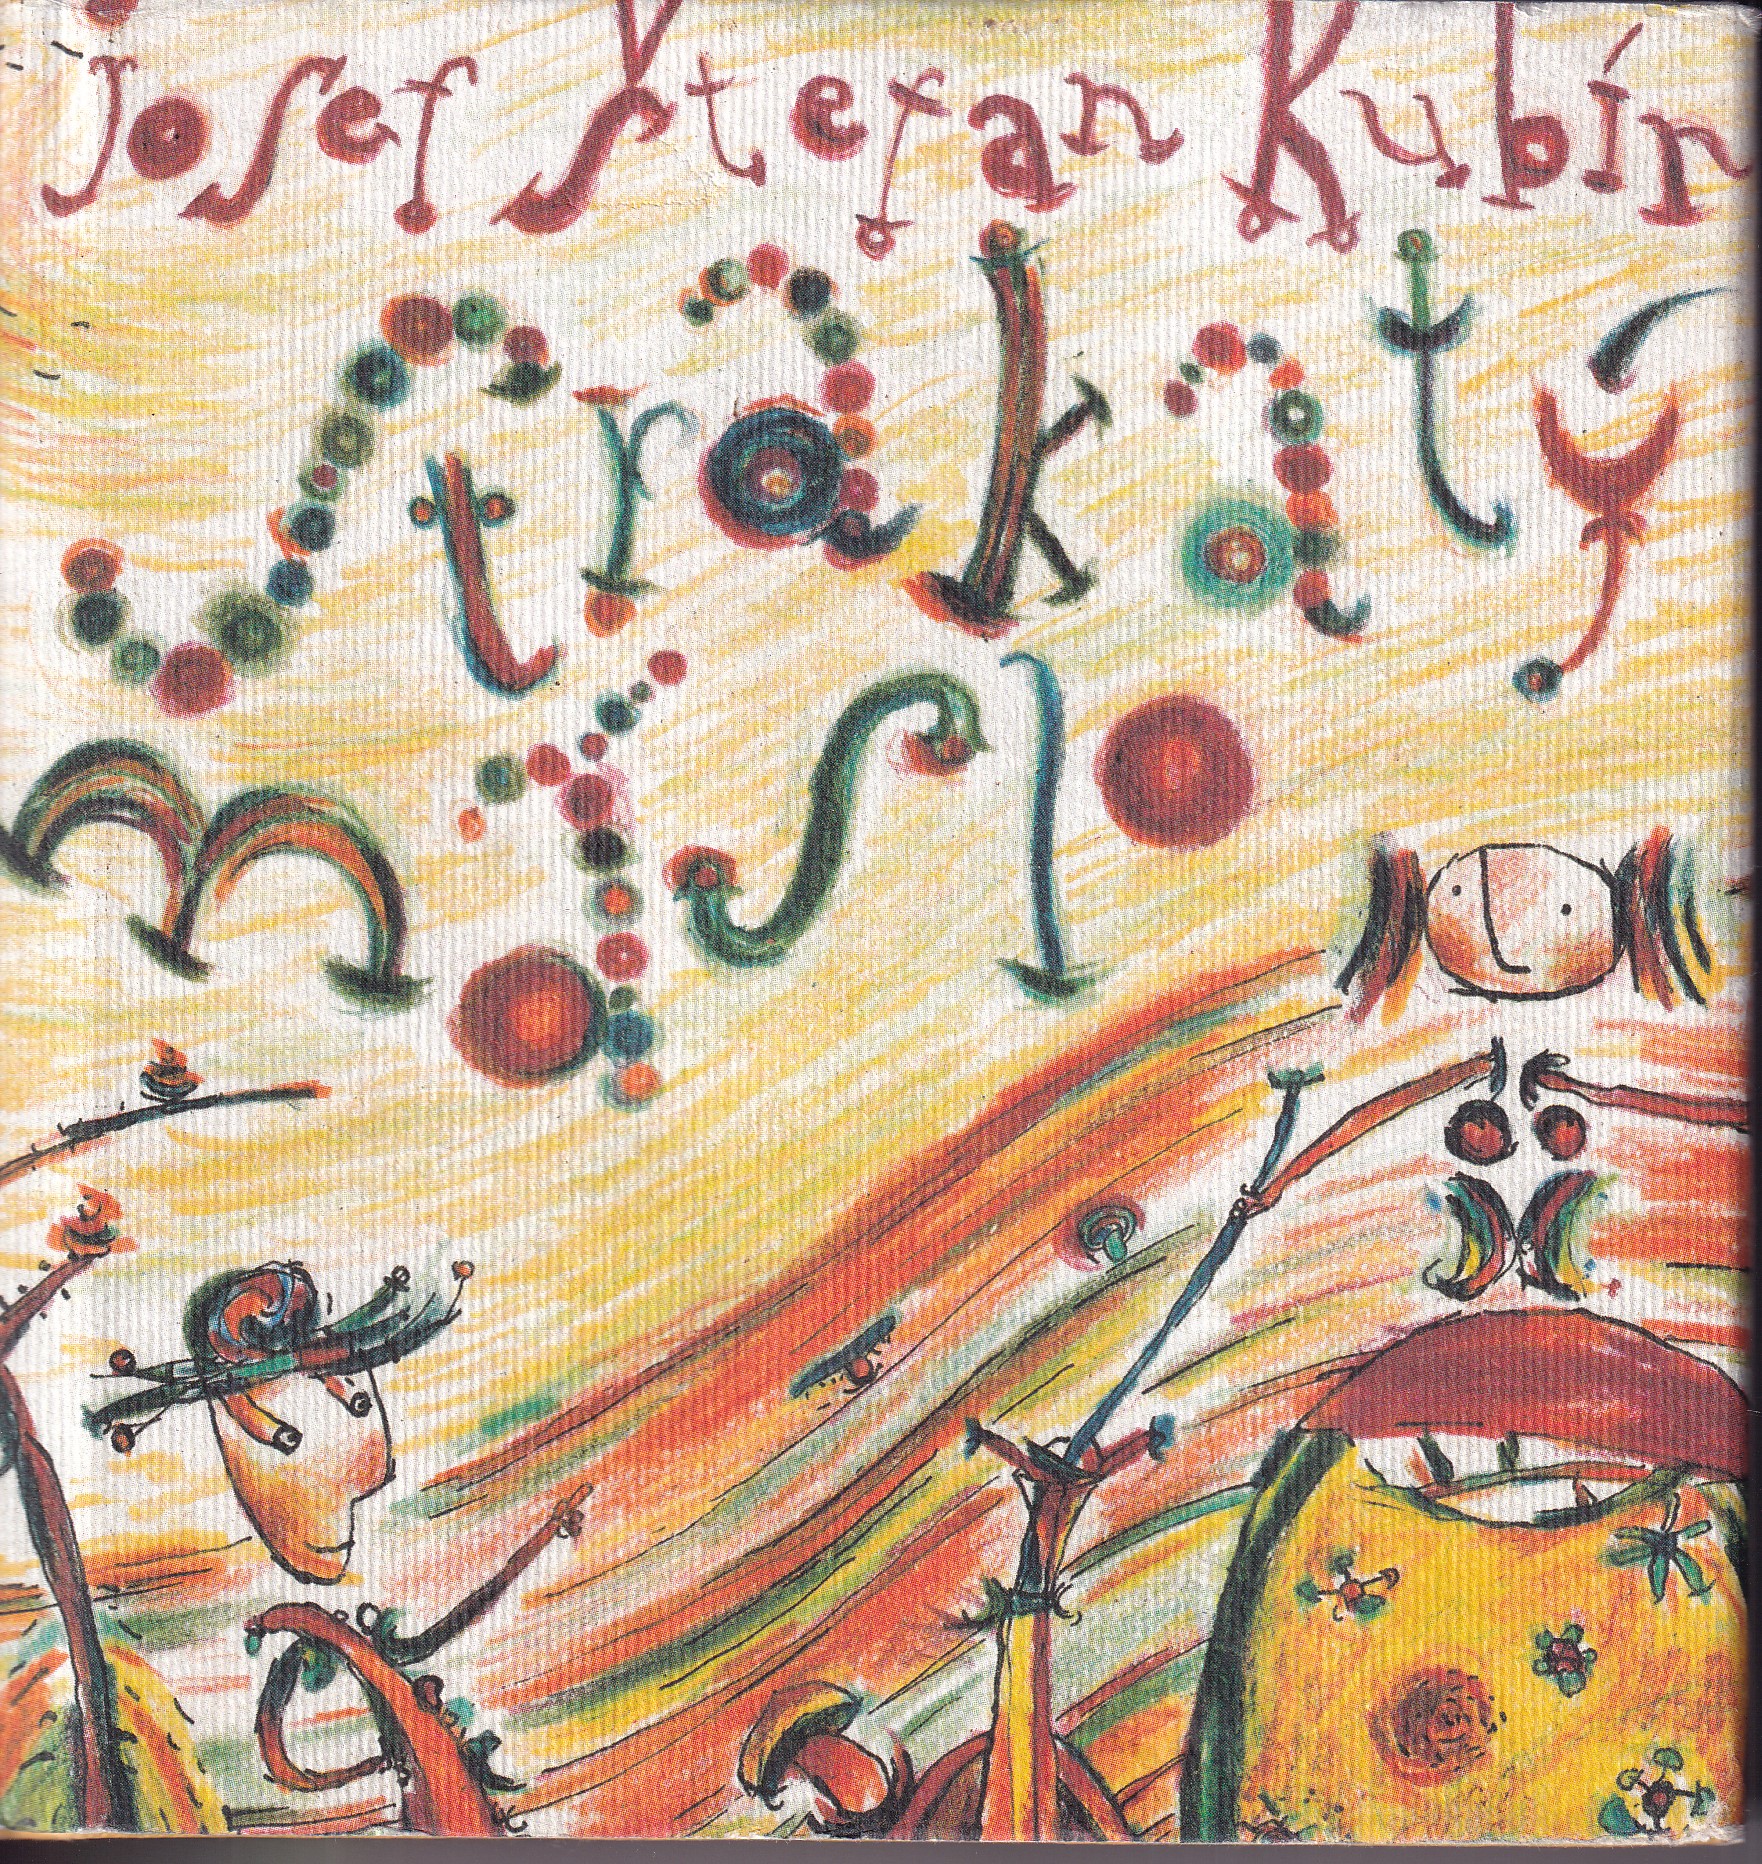 Josef Štefan Kubín
Strakatý
máslo